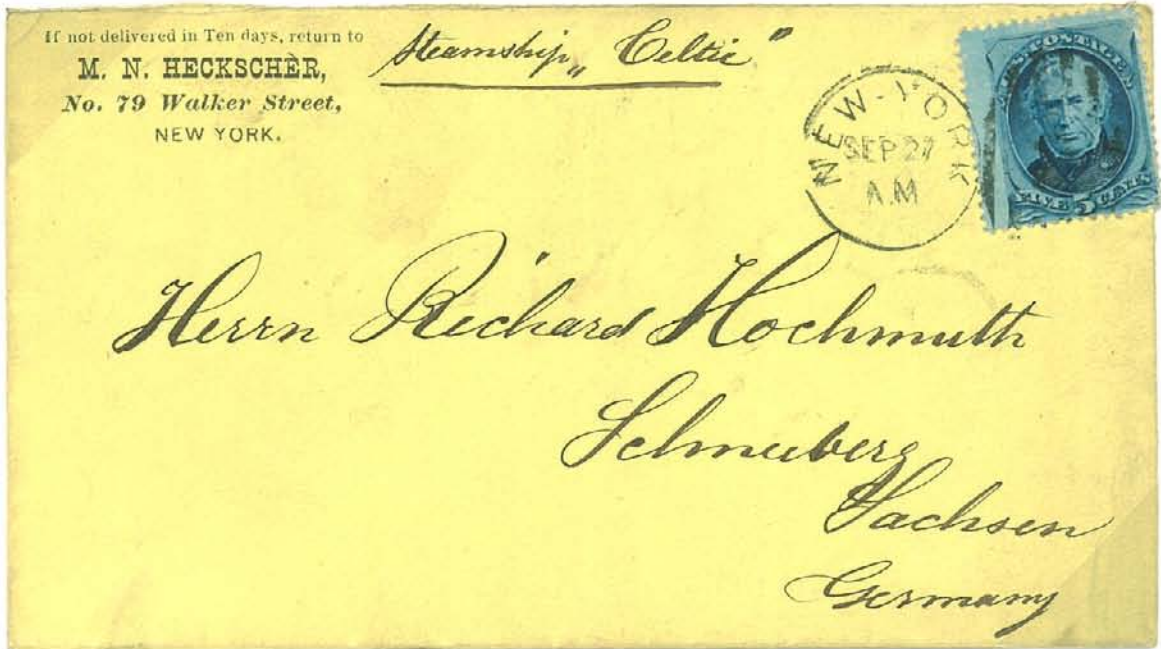 If not delivered in Ten days, return to
M. N. HECKSCHÈR,
No. 79 Walker Street,
NEW YORK.
Steamship „Celtic"
NEW-YORK
SEP 27
A.M
U.S. POSTAGE
FIVE 5 CENTS
Herrn Richard Hochmuth
Schneeberg
Sachsen
Germany